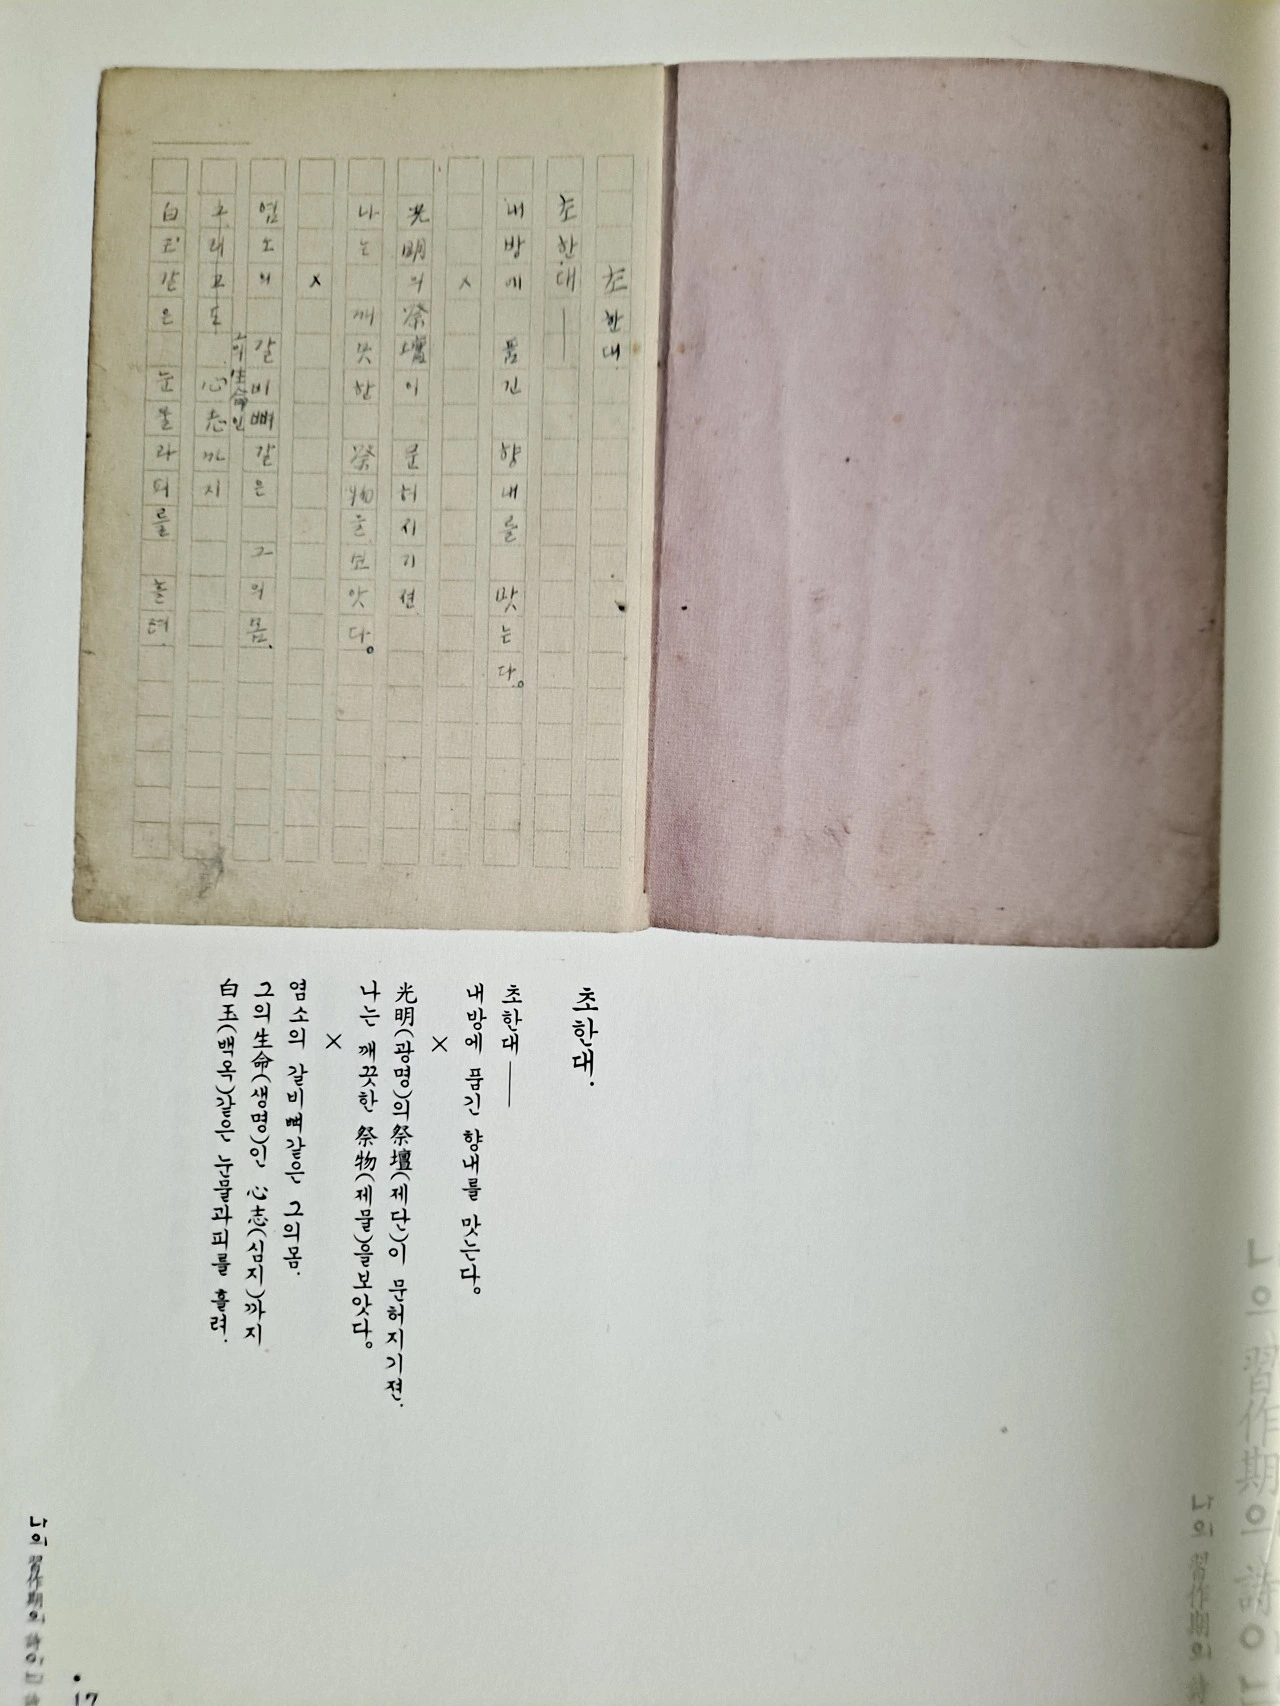 초한대.
초한대 ——
내방에 품긴 향내를 맛는다。
×
光明의祭壇이 문허지기젼.
나는 깨끗한 祭物을보앗다。
×
염소의 갈비뼈같은 그의몸.
그의生命인
그래고도 心志까지
白玉같은 눈물과피를 흘려.
초한대.
초한대 ——
내방에 품긴 향내를 맛는다。
×
光明(광명)의祭壇(제단)이 문허지기젼.
나는 깨끗한 祭物(제물)을보앗다。
×
염소의 갈비뼈같은 그의몸.
그의生命(생명)인 心志(심지)까지
白玉(백옥)같은 눈물과피를 흘려.
나의 習作期의 詩아닌
17
나의 習作期의 詩아
나의 習作期의